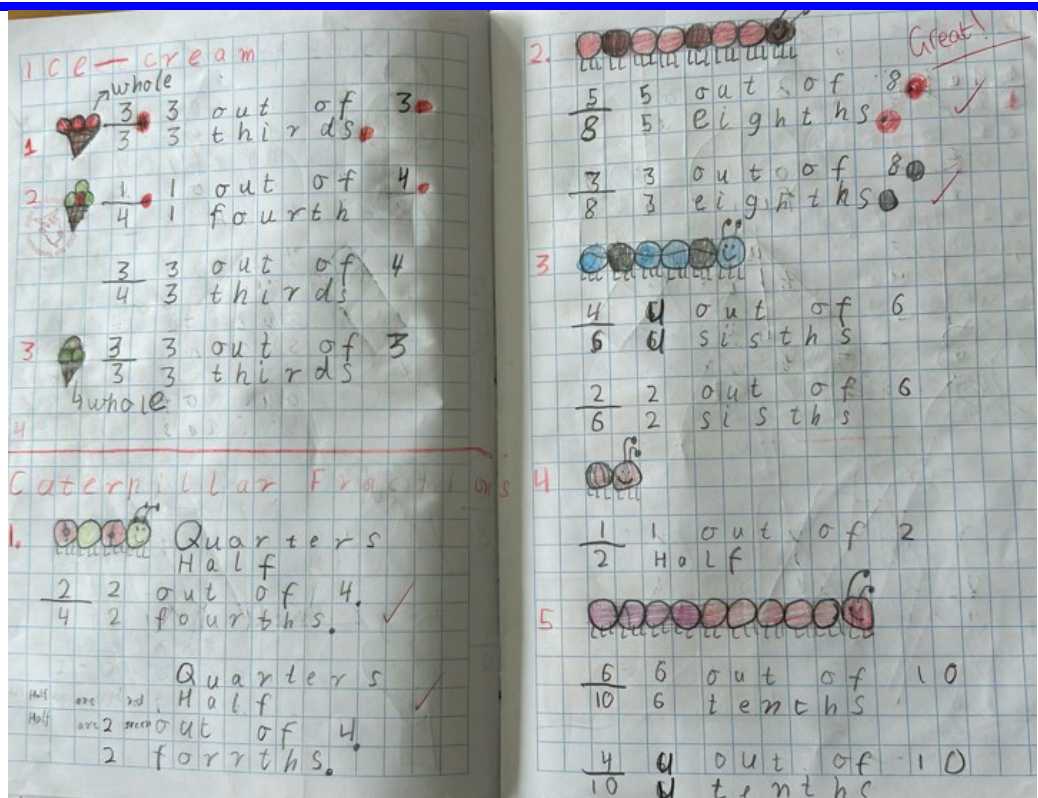 Ice-cream
whole
1
3/3 3 out of 3
3 thirds
2
1/4 1 out of 4
1 fourth
3/4 3 out of 4
3 thirds
3
3/3 3 out of 3
3 thirds
whole
4
Caterpillar Fractions
1. Quarters
Half
2/4 2 out of 4.
2 fourths.
Quarters
Half are red. Half
Half are green 2 out of 4.
2 forrths.
2.
Great!
5/8 5 out of 8
5 eighths
3/8 3 out of 8
3 eighths
3
4/6 4 out of 6
4 sisths
2/6 2 out of 6
2 sisths
4
1/2 1 out of 2
Half
5
6/10 6 out of 10
6 tenths
4/10 4 out of 10
4 tenths